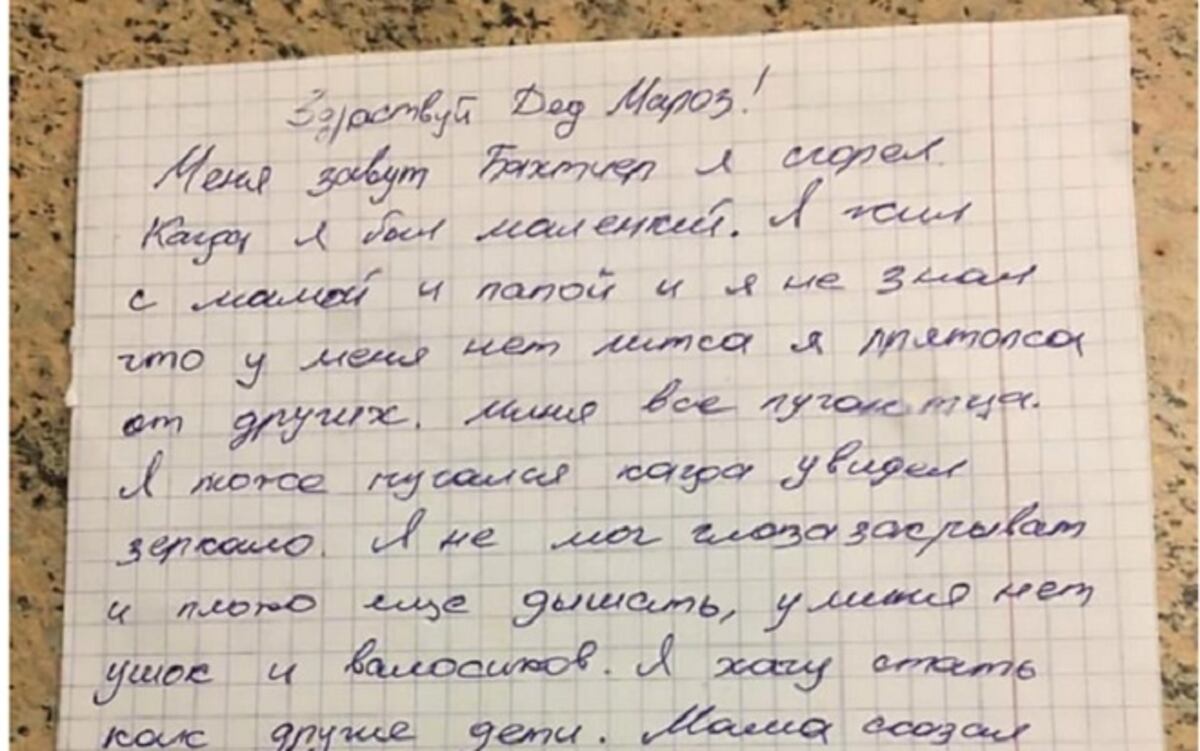 Здраствуй Дед Мароз!
Меня завут Бахтиер я сгорел
Кагда я был маленкий. Я жил
с мамой и папой и я не знал
что у меня нет литса я прятолса
от других. миня все пугаютца.
Я тоже пугался кагда увидел
зеркало. Я не мог глоза закрыват
и плохо еще дышать, у миня нет
ушок и валосиков. Я хачу стать
как другие дети. Мама сказал